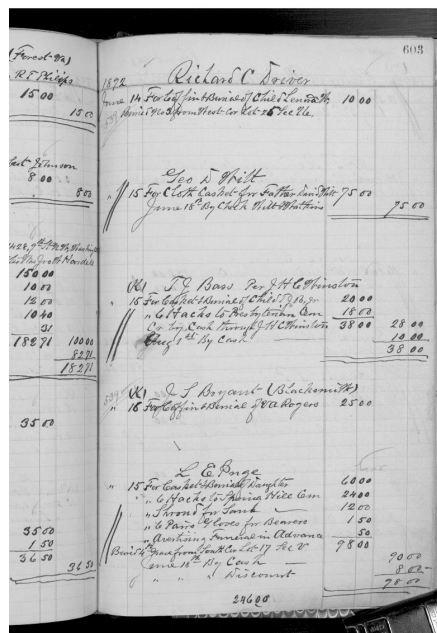 (Forest Va)
R E Phelps
15 00
15 00
Johnson
8 00
8 00
150 00
10 00
12 00
10 40
31
182 71 100 00
82 71
182 71
35 00
35 00
1 50
36 50
36 50
603
Richard C Driver
1892
June 14 For Coffin & Burial of Child 10 00
Geo D Wilt
" 15 For Cloth Casket for Father 75 00
June 18th By Check 75 00
T J Bass Per J H C Winston
" 15 For Casket & Burial of Child T J B Jr 20 00
" 6 Hacks to Presbyterian Cem 18 00
Cr by Cash through J H C Winston 38 00 28 00
Aug 1st By Cash 10 00
38 00
J S Bryant (Blacksmith)
" 16 For Coffin & Burial of V A Rogers 25 00
L E
" 15 For Casket & Burial of Daughter 60 00
" 6 Hacks to Spring Hill Cem 24 00
" Shroud for Same 12 00
" 6 Pairs Gloves for Bearers 1 50
" Avertising Funeral in Advance 50
Lot 17 Sec V 98 00
June 18th By Cash 90 00
" " Discount 8 00
98 00
246 00